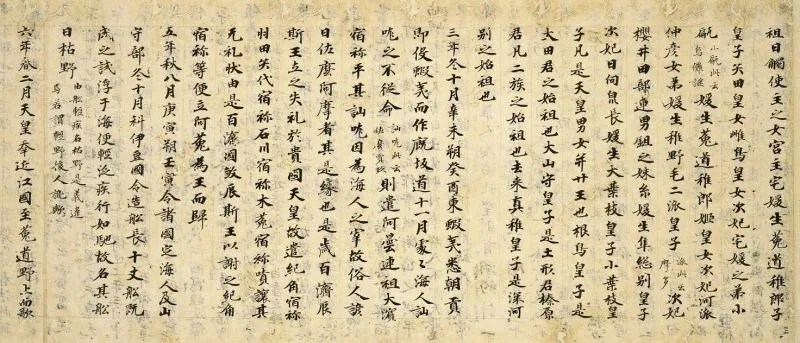 祖日觸使主之女宮主宅媛生菟道稚郎子
皇子矢田皇女雌鳥皇女次妃宅媛之弟小
甂小甂此云烏儺謎媛生菟道稚郎姬皇女次妃河派
仲彦女弟媛生稚野毛二派皇子派此云摩多次妃
櫻井田部連男鉏之妹糸媛生隼総別皇子
次妃日向泉長媛生大葉枝皇子小葉枝皇
子凡是天皇男女并廿王也根鳥皇子是
大田君之始祖也大山守皇子是土形君榛原
君凡二族之始祖也去来真稚皇子是深河
別之始祖也
三年冬十月辛未朔癸酉東蝦夷悉朝貢
即役蝦夷而作厩坂道十一月處々海人訕
哤之不從命訕哤此云佐麼賣玖則遣阿曇連祖大濱
宿祢平其訕哤因為海人之宰故俗人諺
曰佐麼阿摩者其是縁也是歳百濟辰
斯王立之失礼於貴國天皇故遣紀角宿祢
羽田矢代宿祢石川宿祢木菟宿祢嘖讓其
无礼状由是百濟國敘辰斯王以謝之紀角
宿祢等便立阿菟為王而歸
五年秋八月庚寅朔壬寅令諸國定海人及山
守部冬十月科伊豆國令造舩長十丈舩既
成之試浮于海便輕泛疾行如馳故名其舩
曰枯野由舩輕疾名枯野是義違焉若謂輕野後人訛歟
六年春二月天皇奉近江國至菟道野上而歌